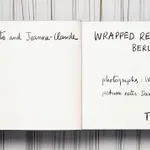 to and Jeanne-Claude
WRAPPED RE
BERL
photographs : W
picture notes Da
T